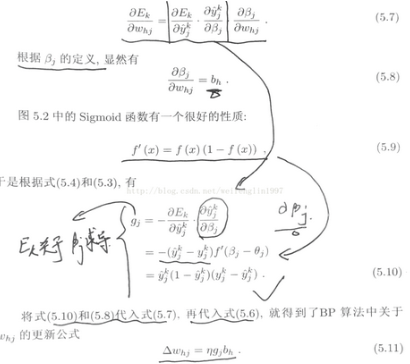 ∂E_k/∂w_hj = ∂E_k/∂ŷ_j^k · ∂ŷ_j^k/∂β_j · ∂β_j/∂w_hj . (5.7)
根据 β_j 的定义, 显然有
∂β_j/∂w_hj = b_h . (5.8)
图 5.2 中的 Sigmoid 函数有一个很好的性质:
f′(x) = f(x)(1 − f(x)) , (5.9)
于是根据式(5.4)和(5.3), 有
g_j = − ∂E_k/∂ŷ_j^k · ∂ŷ_j^k/∂β_j
= −(ŷ_j^k − y_j^k) f′(β_j − θ_j)
= ŷ_j^k (1 − ŷ_j^k)(y_j^k − ŷ_j^k) . (5.10)
将式(5.10)和(5.8)代入式(5.7), 再代入式(5.6), 就得到了BP 算法中关于
w_hj 的更新公式
Δw_hj = ηg_j b_h . (5.11)